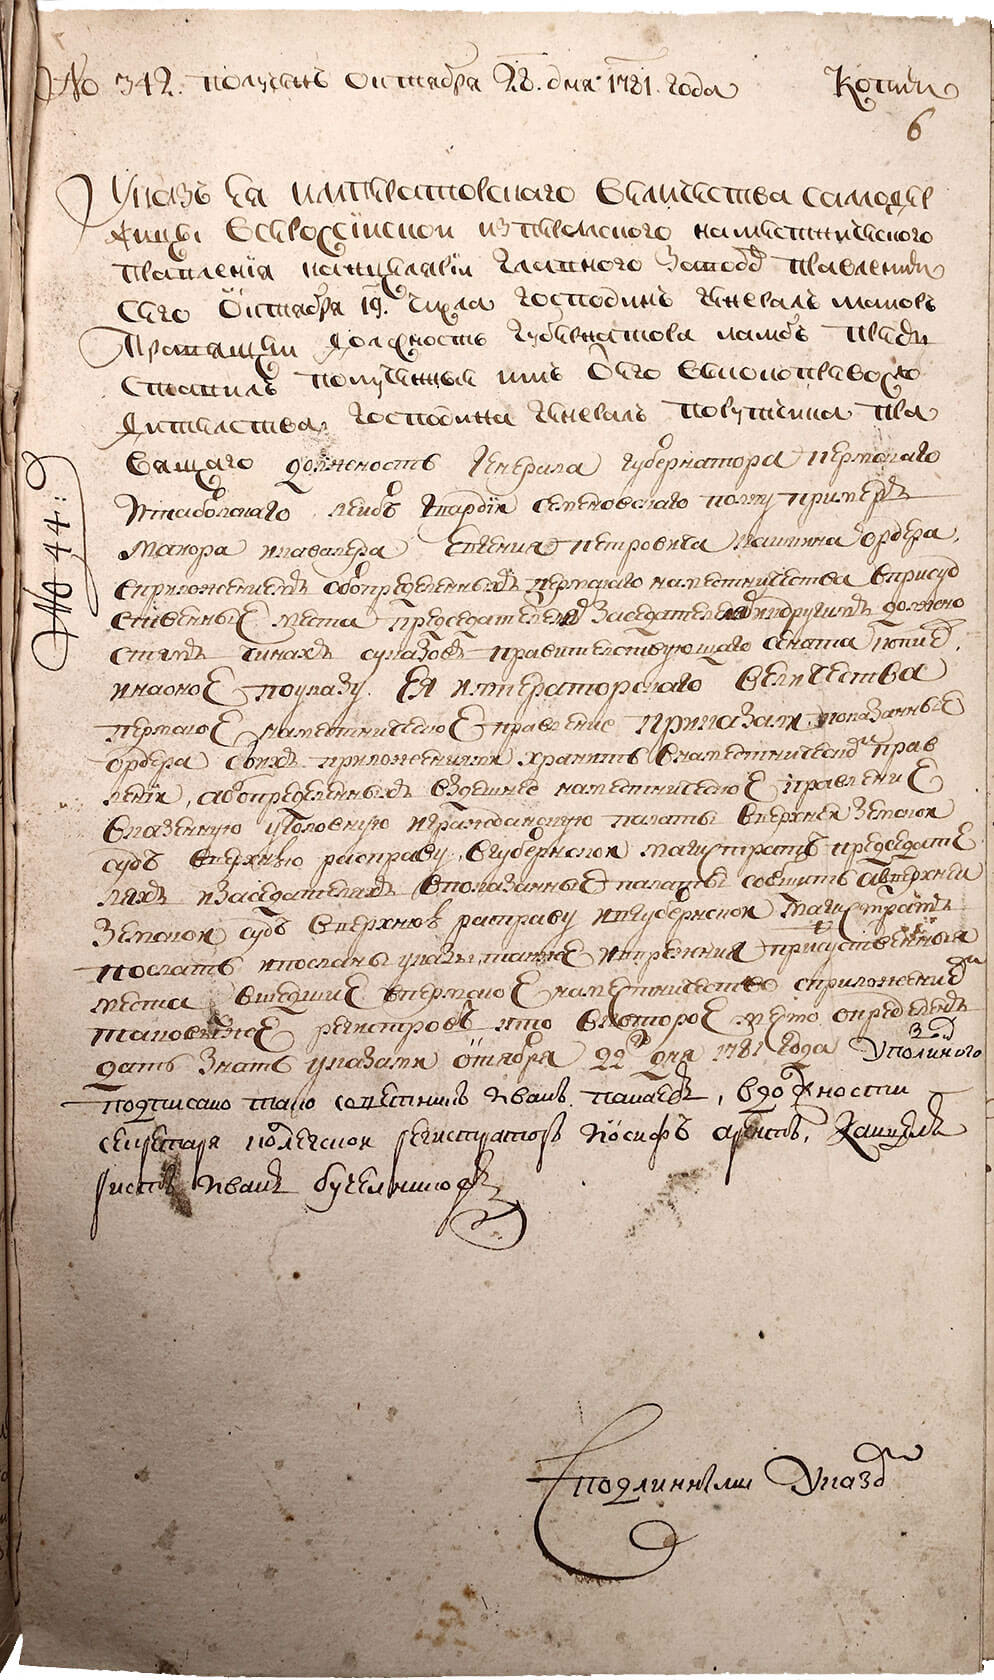 No 342. получен Октября 28. дня 1781. года Копия
6
Указъ Ея императорскаго величества самодер
жицы всероссииской изпермского наместническаго
правления канцелярiи главного Завод правления
Сего Октября 19. числа господинъ генералъ маиоръ
Правящей должность губернатора ламбъ предъ
ставилъ полученные имъ отъ Его высокопревосхо
дительства господина генералъ порутчика пра
вящаго должность Генерала губернатора пермскаго
No 44:
итобольскаго лейбъ гвардiи семеновскаго полку премьеръ
маиора икавалера Евгения петровича кашкина ордера,
сприложениемъ обопределенныхъ пермскаго наместничества вприсуд
ственные места председателей Заседателей идругимъ должно
стямъ чинахъ суказовъ правителствующаго сената копией,
инаоное поуказу Ея императорскаго величества
пермское наместническое правление приказали показанные
ордера своихъ приложениями хранить внаместническомъ прав
ленiи, аобопределенныхъ вздешнее наместническое правление
вказенную уголовную игражданскую палаты вверхней земской
судъ вверхнюю расправу вгубернской магистратъ председате
ляхъ изаседателяхъ впоказанные палаты сообщить авверхней
Земской судъ вверхнюю расправу ивгубернской магистратъ
послать ипосланы указы, также ипрежния присутственныя
места вшедшие впермское наместничество сприложениемъ
таковыхже регистровъ кто вкоторое место определенъ
дать знать указами октября 22 дня 1781 года Уполиного
подписано тако советникъ Иванъ Панаевъ, вдолжности
секретаря колежской регистраторъ Иосифъ арентъ, Канцеля
ристъ Иванъ бучельниковъ
Сподлиннымъ Указом